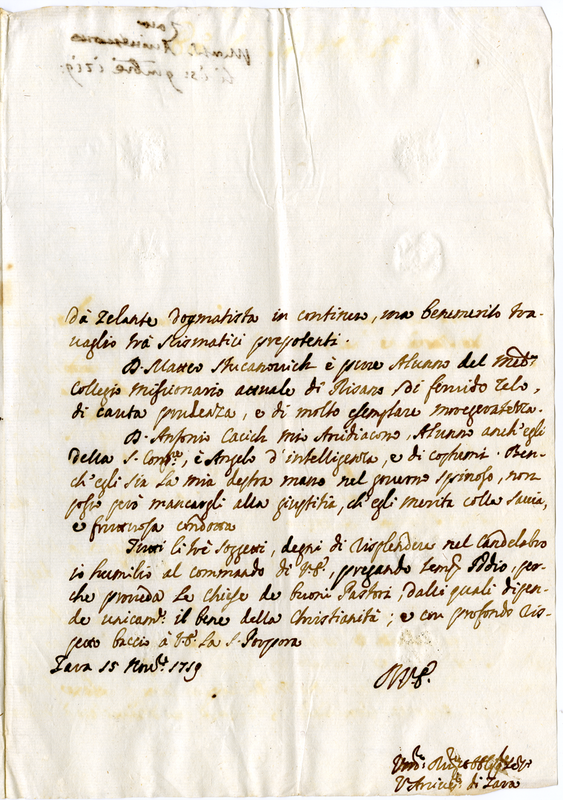 dà zelante Dogmatista in continuo, ma benemerito tra-
uaglio trà Scismatici prepotenti.
D. Matteo Stucanouich è pure Alunno del med.mo
Collegio missionario attuale di Risano, di feruido zelo,
di cauta prudenza, e di molto esemplare morigeratezza.
D. Antonio Cacich mio Arcidiacono, Alunno anch'egli
della S. Cong.ne, è Angelo d'intelligenza, e di costumi. Ben-
ch'egli sia la mia destra mano nel gouerno spinoso, non
posso però mancargli alla giustitia, ch'egli merita colla sauia,
e fruttuosa condotta
Tutti li trè soggetti, degni di risplendere nel candelabro
io humilio al commando di V.E., pregando sem.e Iddio, per-
che proueda le chiese de buoni Pastori, dalli quali dipen-
de unicam.e il bene della Christianità; e con profondo ris-
petto baccio à V.E. la S. Porpora
Zara 15 Nou.e 1719
D. V. E.
L'Arciu.o di Zara